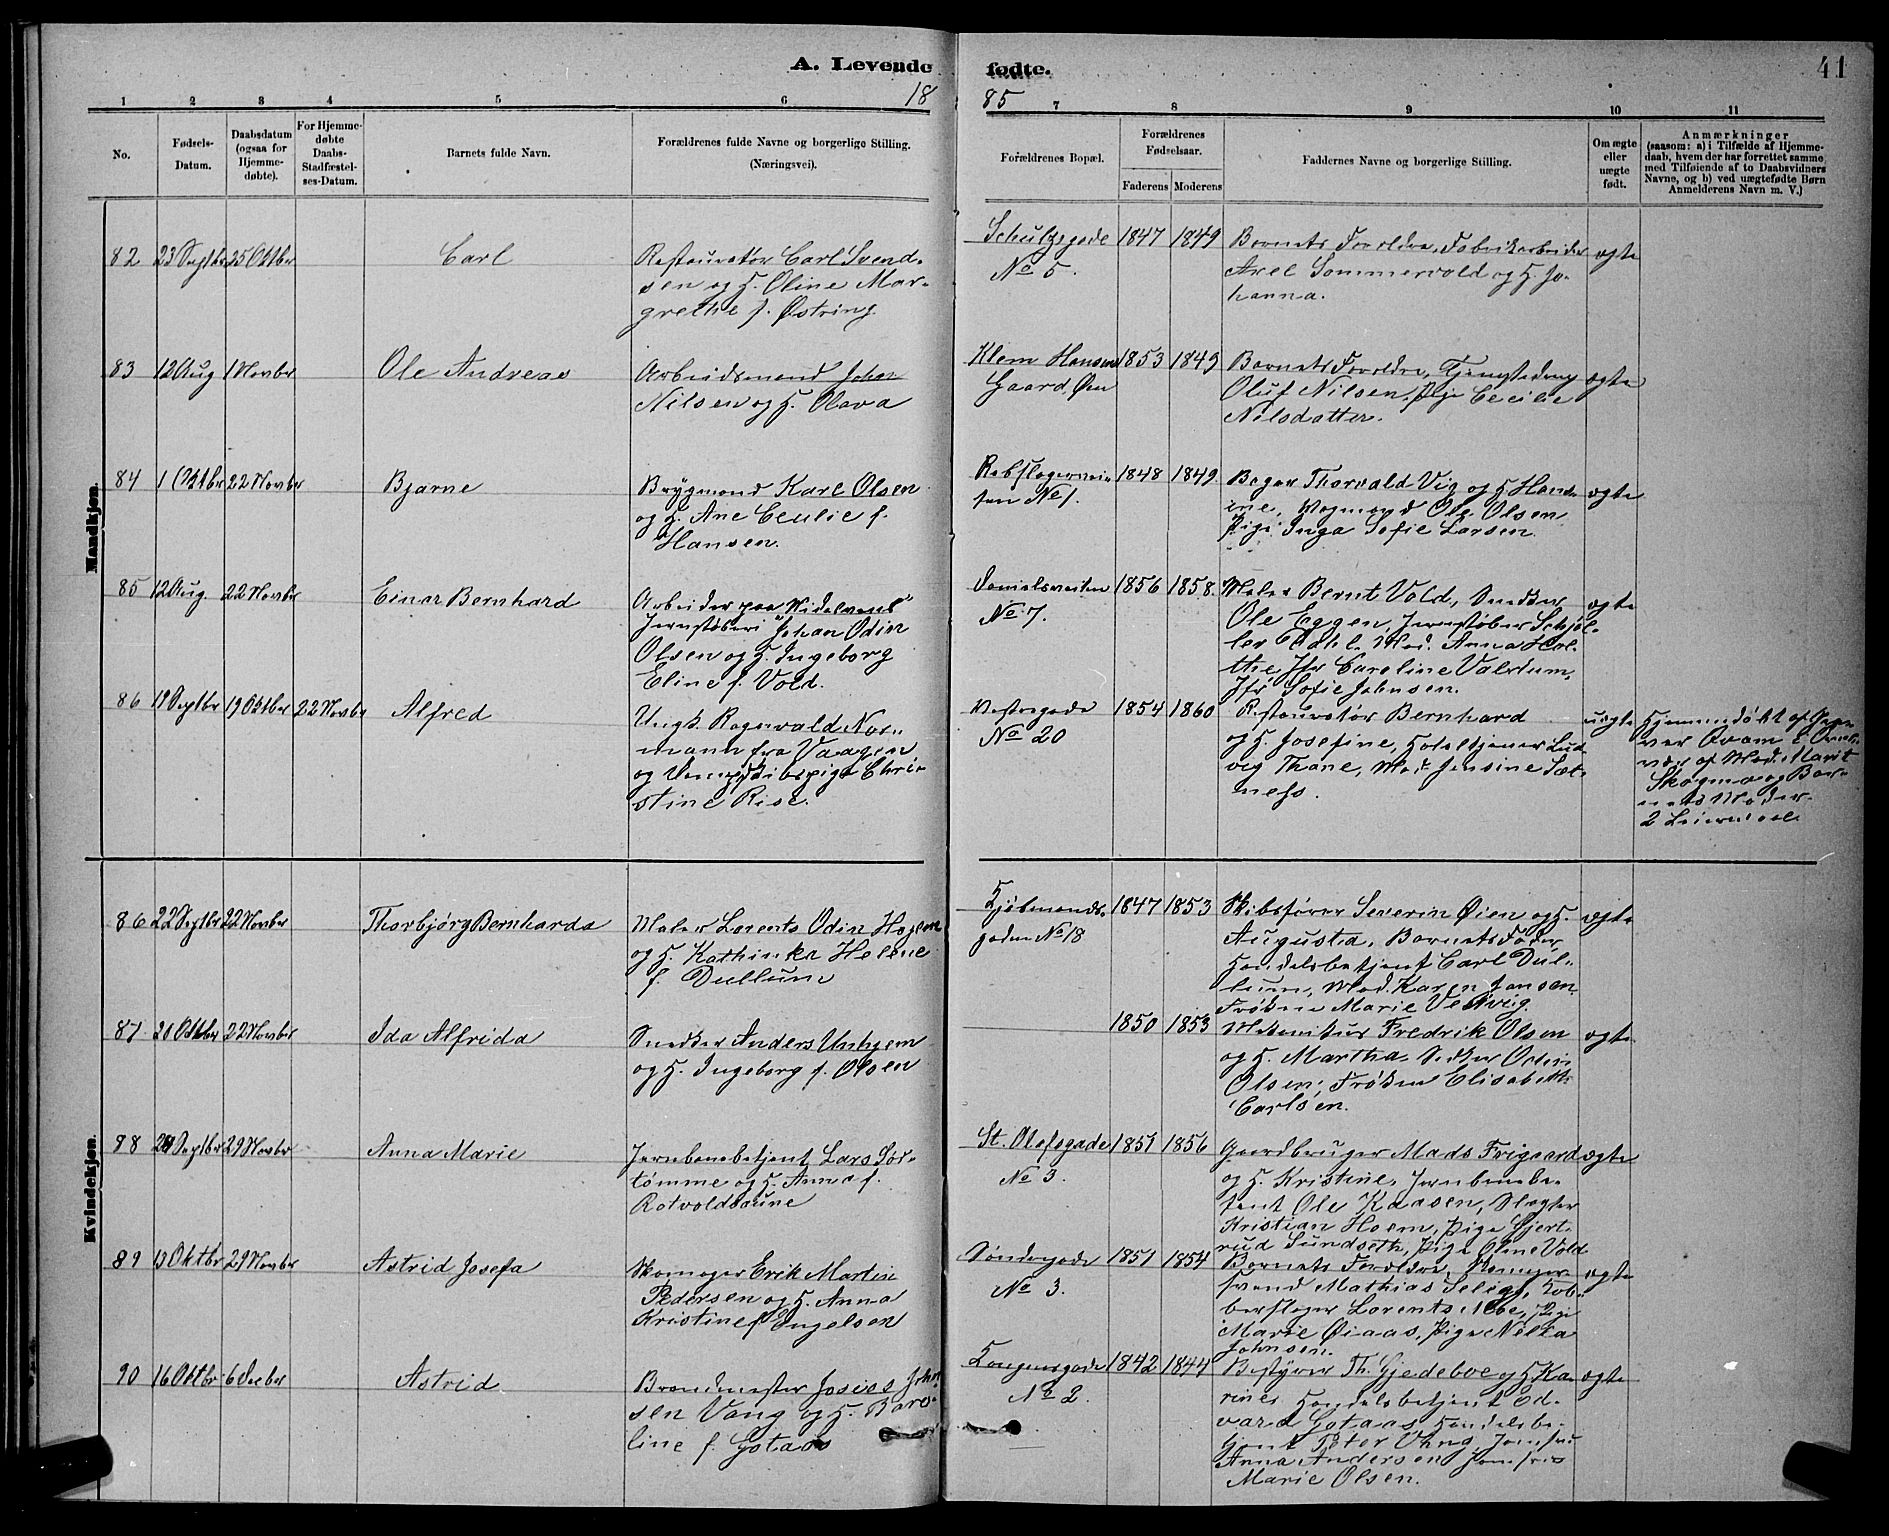 A. Levende fødte.
41
1885
1 2 3 4 5 6 7 8 9 10 11
No.
Fødsels-
Datum.
Daabsdatum
(ogsaa for
Hjemme-
døbte).
For Hjemme-
døbte
Daabs-
Stadfæstel-
ses-Datum.
Barnets fulde Navn.
Forældrenes fulde Navne og borgerlige Stilling.
(Næringsvei).
Forældrenes Bopæl.
Forældrenes
Fødselsaar.
Faderens Moderens
Faddernes Navne og borgerlige Stilling.
Om ægte
eller
uægte
født.
Anmærkninger
(saasom: a) i Tilfælde af Hjemme-
daab, hvem der har forrettet samme,
med Tilføiende af to Daabsvidners
Navne, og b) ved uægtefødte Børn
Anmelderens Navn m. V.)
Mandkjøn.
82 23 Septbr 25 Oktbr
Carl
Restauratør Carl Svend-
sen og H. Oline Mar-
grethe f. Østring
Schultzgade
No 5.
1847 1849
Barnets Forældre, Fabrikarbeider
Axel Sommervold og H. Jo-
hanna.
ægte
83 12 Aug 1 Novbr
Ole Andreas
Arbeidsmand Johan
Nilsen og H. Olava
Klem Hansens
Gaard, Øen
1853 1849
Barnets Forældre, Tjenestedreng
Oluf Nilsen, Pige Cecilie
Nilsdatter.
ægte
84 1 Oktbr 22 Novbr
Bjarne
Brygmand Karl Olsen
og H. Ane Cecilie f.
Hansen.
Rebslagervei-
ten No 1.
1848 1849
Bager Thorvald Vig og H. Hand-
ine, Vognmand Ole Olsen,
Pige Inga Sofie Larsen.
ægte
85 12 Aug 22 Novbr
Einar Bernhard
Arbeider paa "Nidelvens
Jernstøberi" Johan Odin
Olsen og H. Ingeborg
Eline f. Vold.
Danielsveiten
No 7.
1856 1858.
Maler Bernt Vold, Snedker
Ole Eggen, Jernstøber Schjøl-
ler Dahl, Mad. Anna Hol-
the, Jfr Caroline Valstum,
Jfr Sofie Johnsen.
ægte
86 19 Septbr 19 Oktbr 22 Novbr
Alfred
Ungk. Ragnvald Nor-
mann fra Vaagen
og Dampskibspige Chri-
stine Rise.
Vestregade
No 20
1854 1860
Restauratør Bernhard
og H. Josefine, Hoteltjener Lud-
vig Thane, Mad. Jensine Sæt-
ness.
uægte
Hjemmedøbt af
Marit
Skogmo og Bar-
nets Moder.
2 Leiermaal
Kvindekjøn.
86 22 Septbr 22 Novbr
Thorbjørg Bernharda
Maler Lorents Odin Hagen
og H. Kathinka Helene
f. Dullum
Kjøbmands-
gaden No 18
1847 1853
Skibsfører Severin Øien og H.
Augusta, Barnets Fader,
Handelsbetjent Carl Dul-
lum, Mad. Karen Jansen,
Frøken Marie Vedvig.
ægte
87 20 Oktbr 22 Novbr
Ida Alfrida
Snedker Anders Unhjem
og H. Ingeborg f. Olsen
1850 1853
Maskinist Fredrik Olsen
og H. Martha, Snedker Odin
Olsen, Frøken Elisabeth
Carlsen.
ægte
88 24 Septbr 29 Novbr
Anna Marie
Jernbanebetjent Lars Sør-
tømme og H. Anna f.
Rotvoldbaune
St. Olafsgade
No 3.
1851 1856
Gaardbruger Mads Frigaard
og H. Kristine, Jernbanebe-
tjent Ole Kaasen, Slagter
Kristian Hoem, Pige Gjert-
rud Sundseth, Pige Oline Vold
ægte
89 13 Oktbr 29 Novbr
Astrid Josefa
Skomager Erik Martin
Pedersen og H. Anna
Kristine f. Engelsen
Søndregade
No 3.
1851 1854
Barnets Forældre, Skomager-
svend Mathias Selegg, Kob-
berslager Lorents Moe, Pige
Marie Øiaas, Pige Nilla
Johnsen.
ægte
90 16 Oktbr 6 Decbr
Astrid
Brandmester Josias John-
sen Vang og H. Baro-
line f. Gotaas
Kongensgade
No 2.
1842 1844
Bestyrer Th. Gjedeboe og H. Ka-
rine, Handelsbetjent Ed-
vard Gotaas, Handelsbe-
tjent Peter Vang, Jomfru
Anna Andersen, Jomfru
Marie Olsen.
ægte